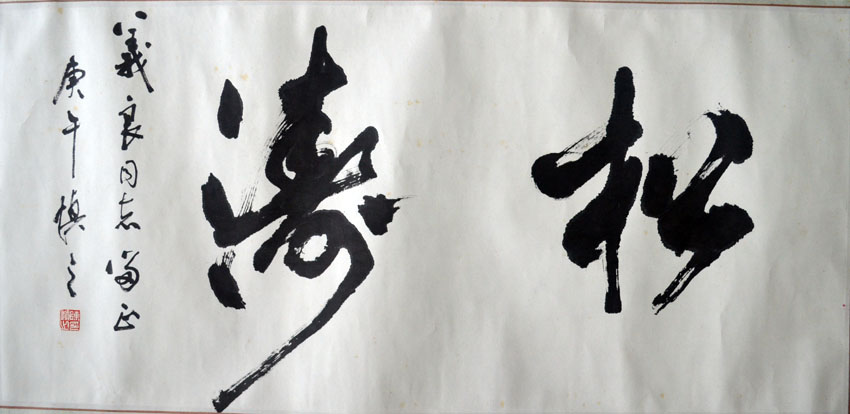 松涛
義良同志留正
庚午慎之